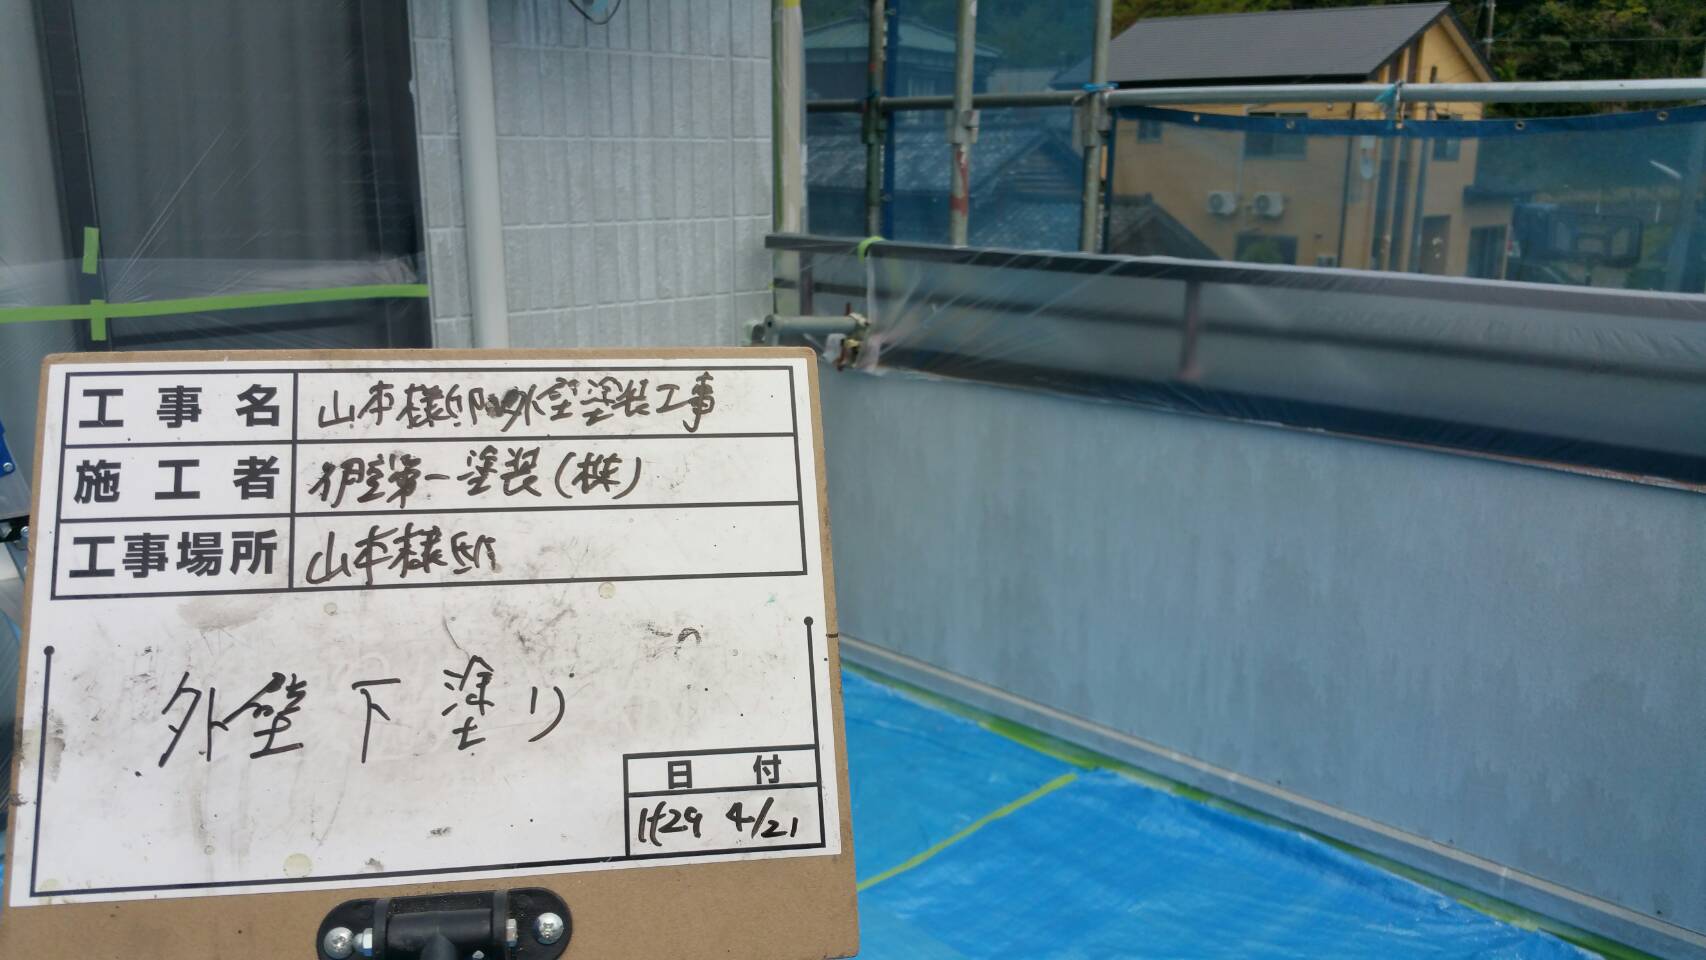 工事名 山本様邸外壁塗装工事
施工者 伊室第一塗装(株)
工事場所 山本様邸
外壁下塗り
日付
H29 4/21